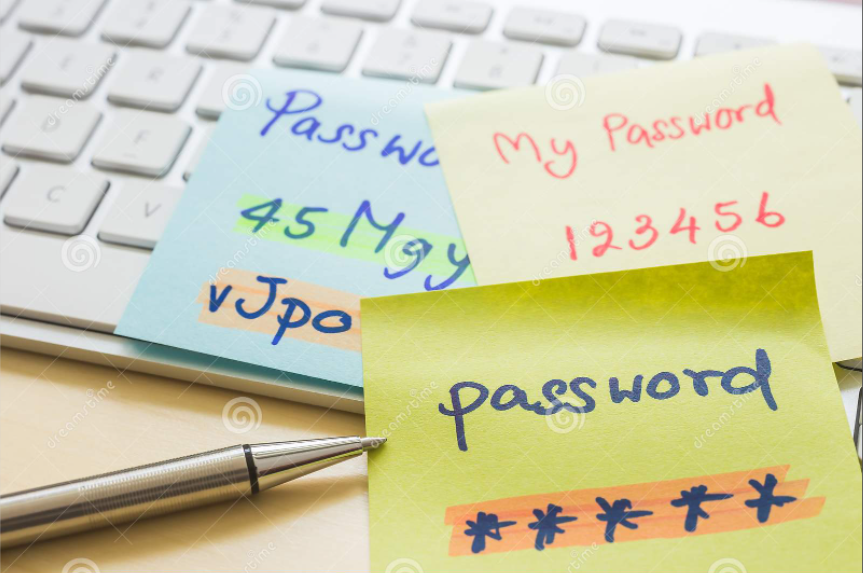 Passwo
45 Mgy
vJpo
My Password
123456
password
*****
E
R
D
F
C
V
dreamstime